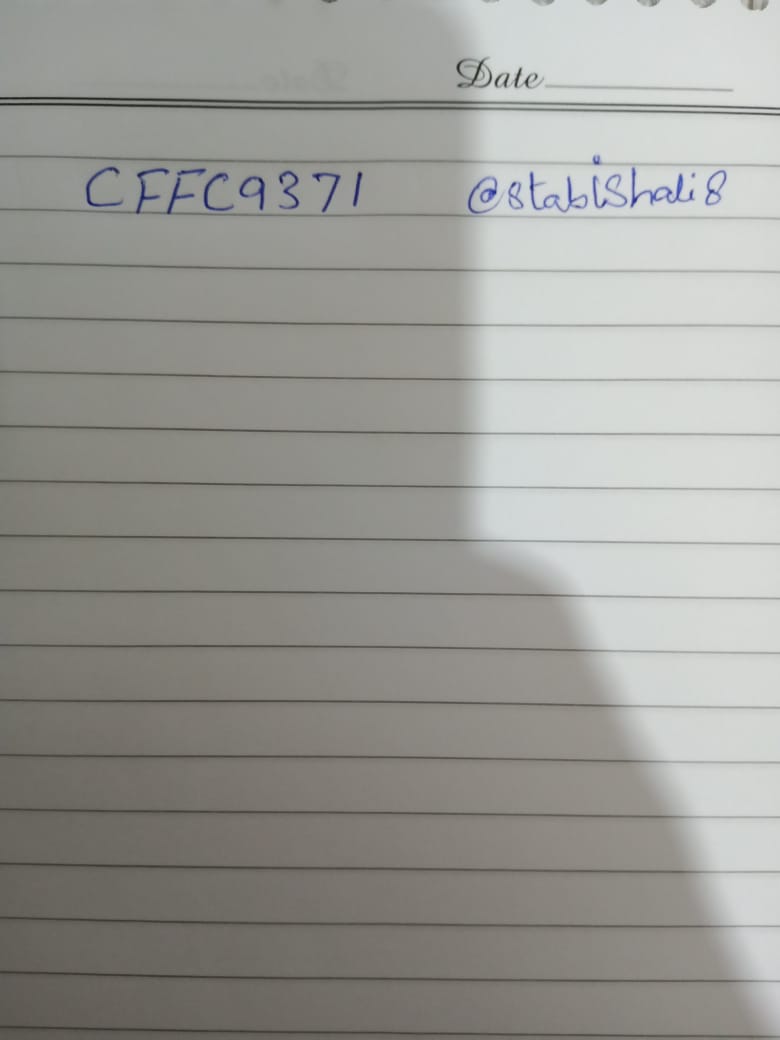 Date
CFFC9371 @stabishali8